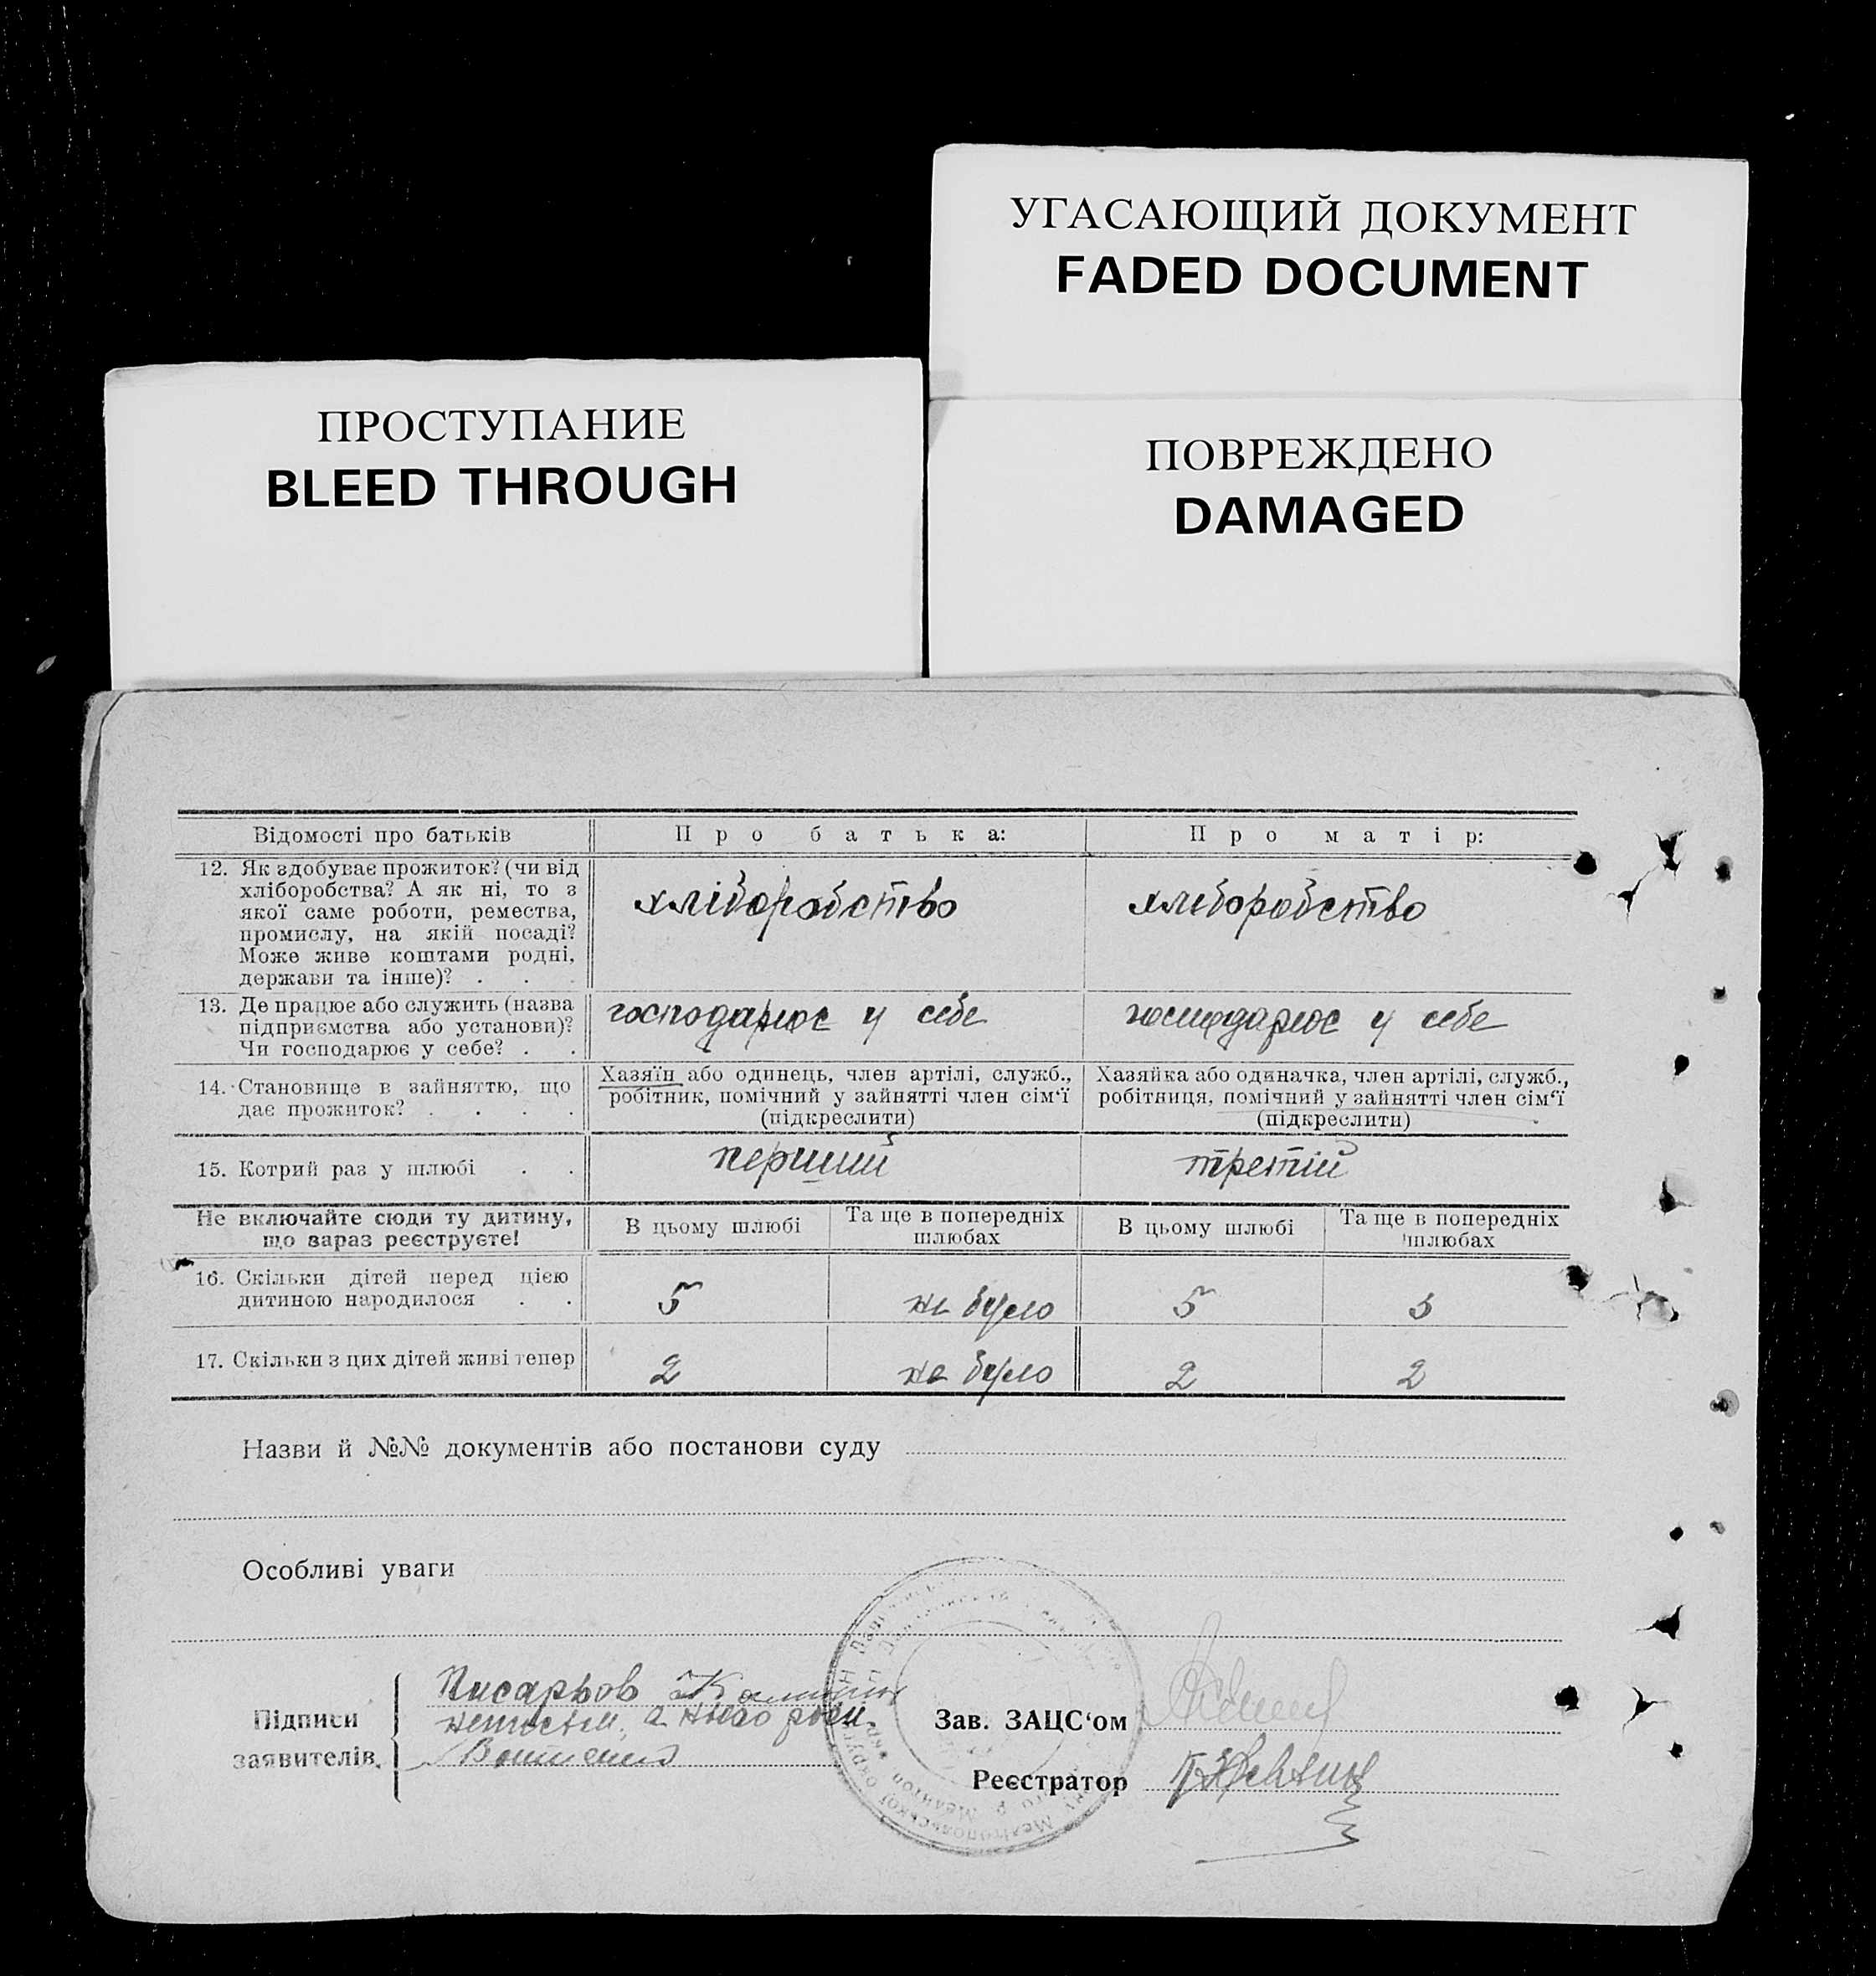 УГАСАЮЩИЙ ДОКУМЕНТ
FADED DOCUMENT
ПРОСТУПАНИЕ
BLEED THROUGH
ПОВРЕЖДЕНО
DAMAGED
Відомості про батьків
Про батька:
Про матір:
12. Як здобуває прожиток? (чи від
хліборобства? А як ні, то з
якої саме роботи, ремества,
промислу, на якій посаді?
Може живе коштами родні,
держави та інше)? . . .
хліборобство
хліборобство
13. Де працює або служить (назва
підприємства або установи)?
Чи господарює у себе? . .
господарює у себе
господарює у себе
14. Становище в зайняттю, що
дає прожиток? . . . .
Хазяїн або одинець, член артілі, служб.,
робітник, помічний у зайнятті член сім‘ї
(підкреслити)
Хазяйка або одиначка, член артілі, служб.,
робітниця, помічний у зайнятті член сім‘ї
(підкреслити)
15. Котрий раз у шлюбі . .
перший
третій
Не включайте сюди ту дитину,
що зараз реєструєте!
В цьому шлюбі
Та ще в попередніх
шлюбах
В цьому шлюбі
Та ще в попередніх
шлюбах
16. Скільки дітей перед цією
дитиною народилося . .
5
не було
5
17. Скільки з цих дітей живі тепер
2
не було
2
2
Назви й №№ документів або постанови суду
Особливі уваги
Підписи
заявителів.
Писарьов
Зав. ЗАЦС‘ом
Реєстратор